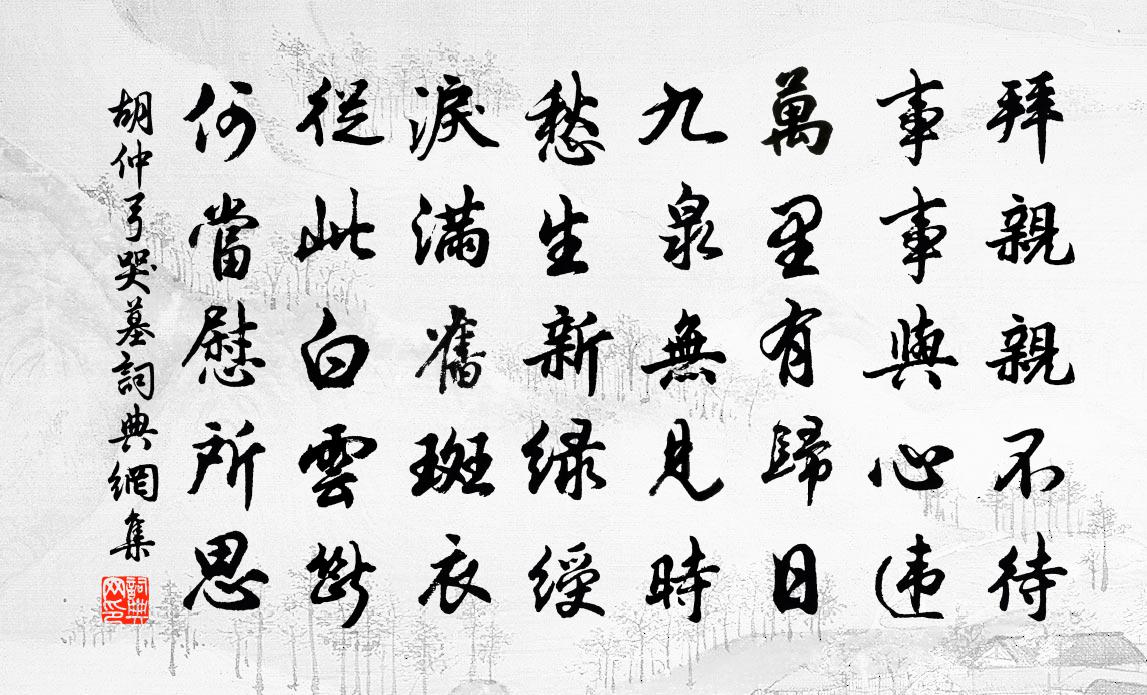 拜親親不待
事事與心違
萬里有歸日
九泉無見時
愁生新綠綬
淚滿舊斑衣
從此白雲斷
何當慰所思
胡仲弓哭墓詞典網集